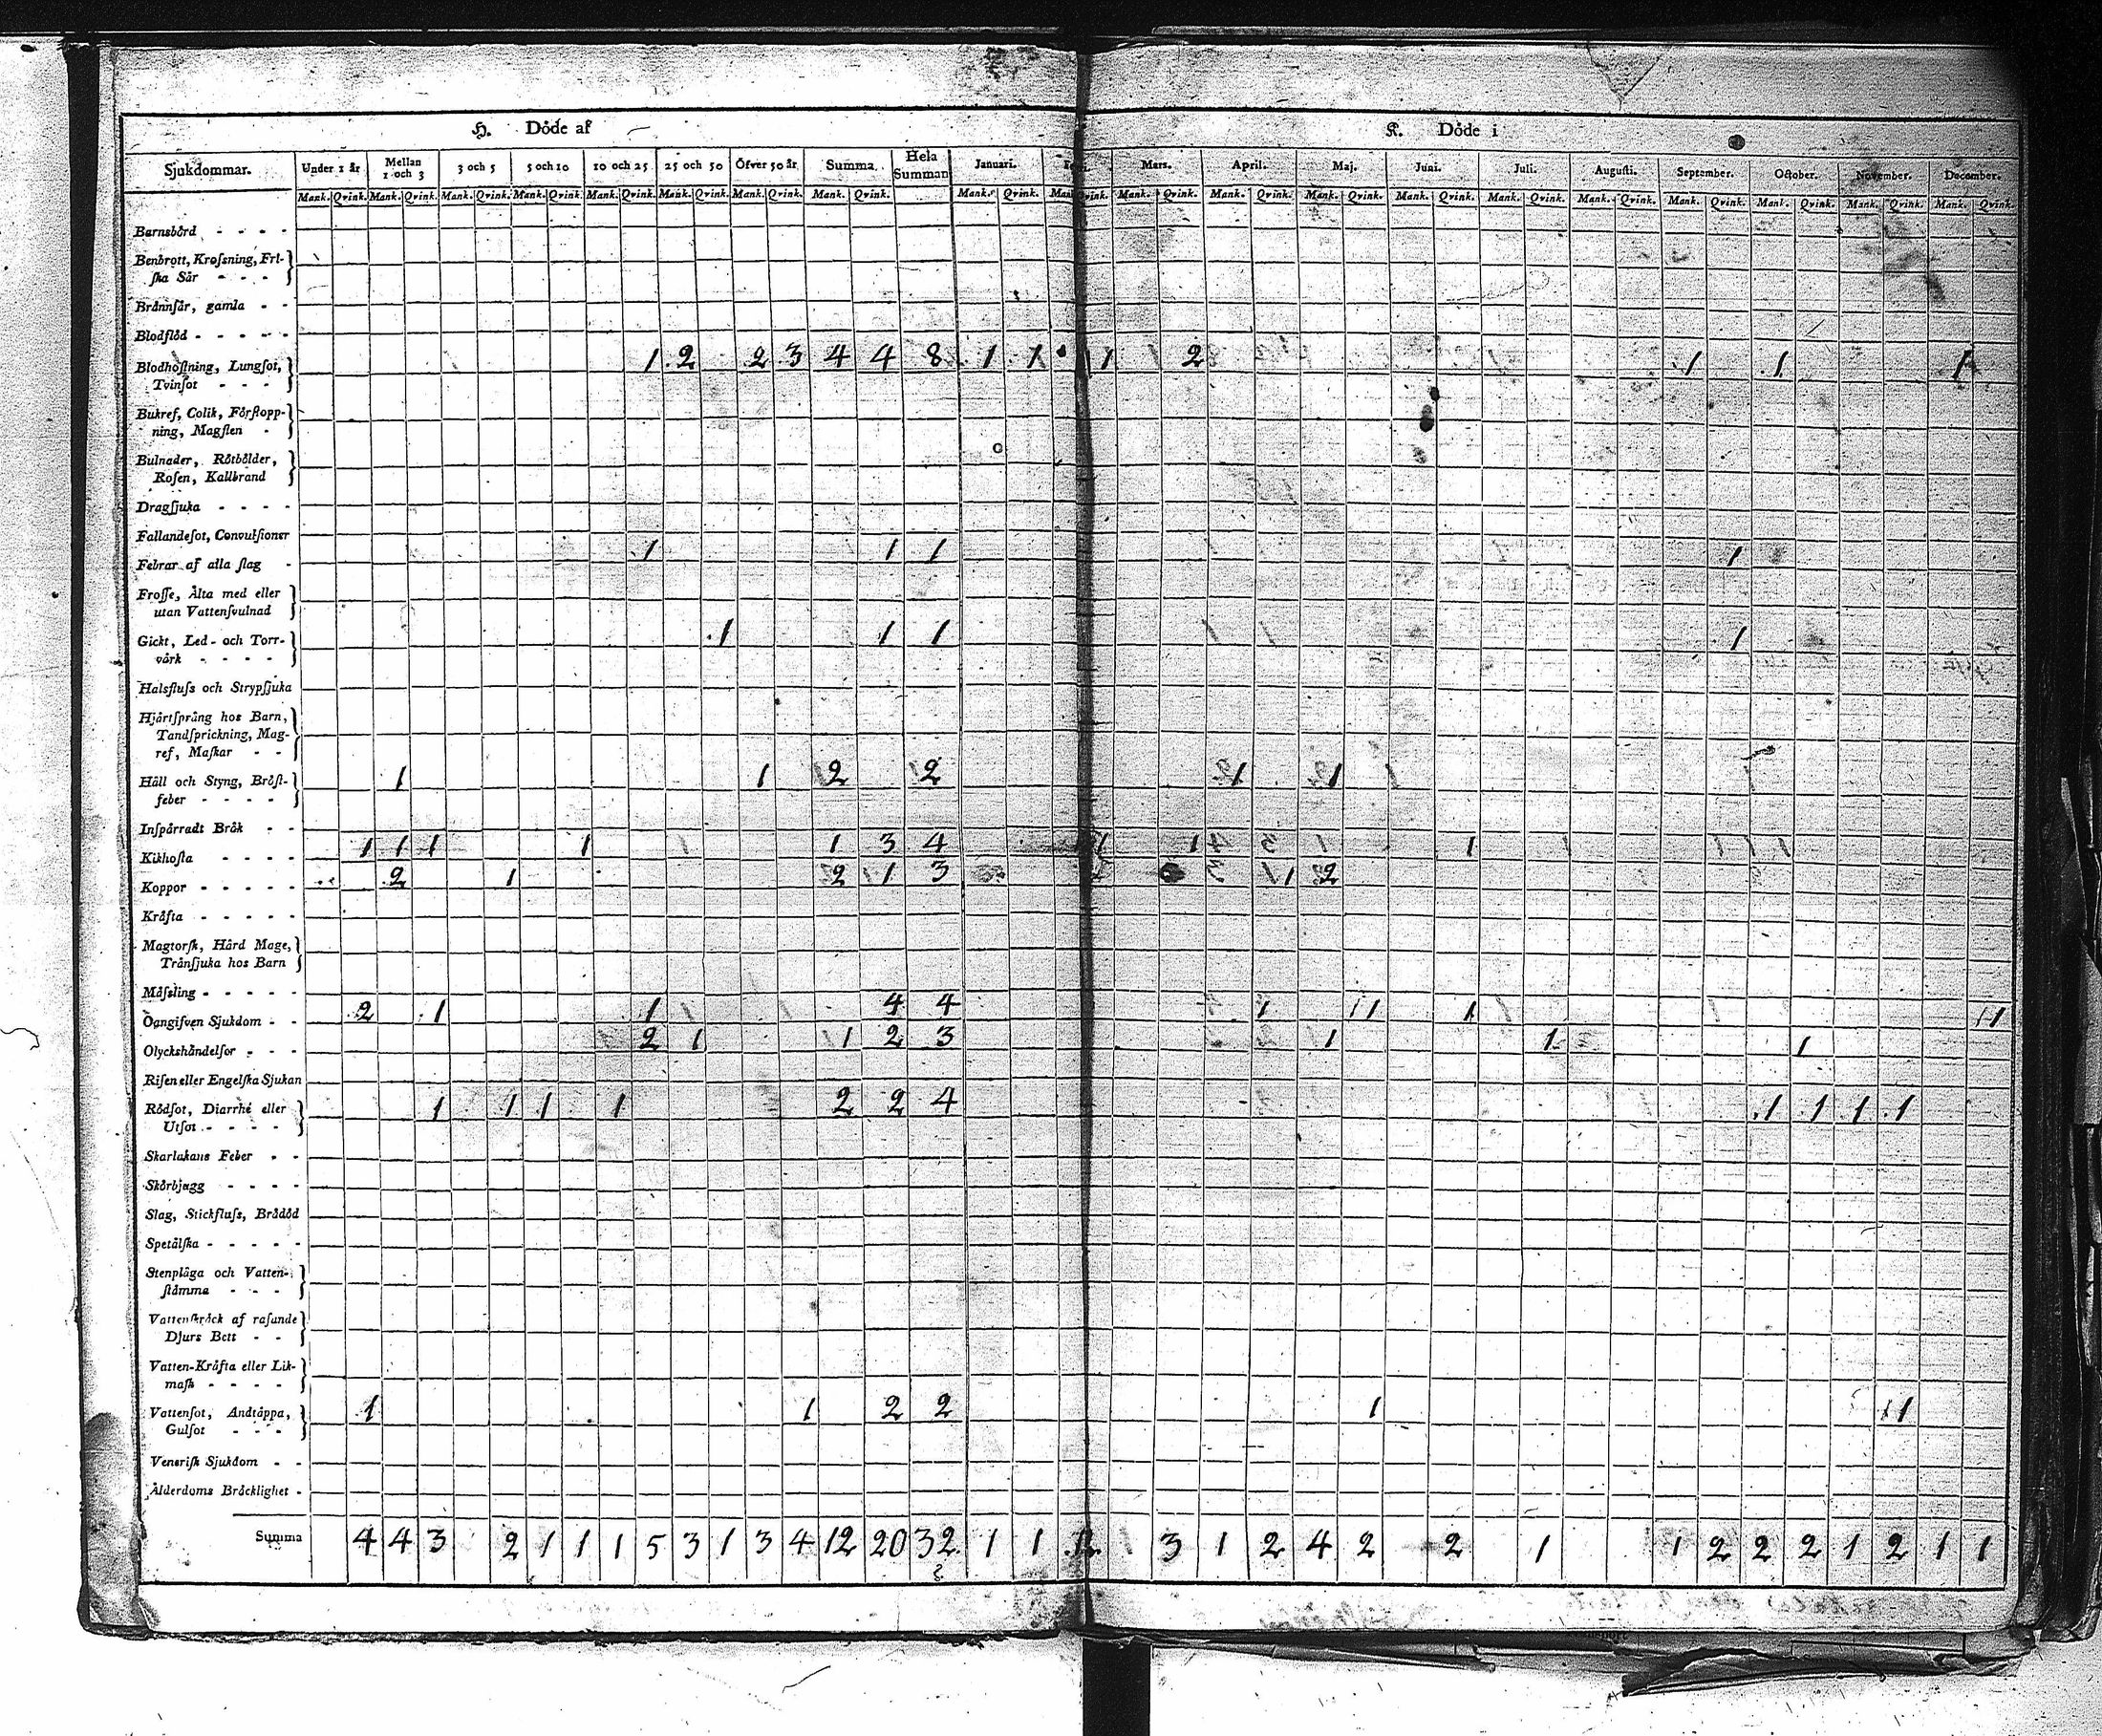 H. Döde af
K. Döde i
Sjukdommar. Under 1 år Mellan 1 och 3 3 och 5 5 och 10 10 och 25 25 och 50 Öfver 50 år Summa. Hela Summan Januari. Mars. April. Maj. Juni. Juli. Augusti. September. October. November. December.
Mank. Qvink. Mank. Qvink. Mank. Qvink. Mank. Qvink. Mank. Qvink. Mank. Qvink. Mank. Qvink. Mank. Qvink. Mank. Qvink. Mank. Qvink. Mank. Qvink. Mank. Qvink. Mank. Qvink. Mank. Qvink. Mank. Qvink. Mank. Qvink. Mank. Qvink. Mank. Qvink. Mank. Qvink. Mank. Qvink.
Barnsbörd - - - -
Benbrott, Krossning, Fri-
ska Sår - - -
Brännsår, gamla - -
Blodflöd - - - - -
Blodhostning, Lungsot, 1 2 2 3 4 4 8 1 1 1 2 1 1 1
Tvinsot - - -
Bukref, Colik, Förstopp-
ning, Magsten -
Bulnader, Rötbölder,
Rosen, Kallbrand
Dragsjuka - - - -
Fallandesot, Convulsioner
Febrar af alla slag - 1 1 1 1
Frosse, Älta med eller
utan Vattensvulnad
Gickt, Led- och Torr- 1 1 1 1
värk - - - -
Halsfluss och Strypsjuka
Hjärtsprång hos Barn,
Tandsprickning, Mag-
ref, Maskar - -
Håll och Styng, Bröst- 1 1 2 2 1 1
feber - - - -
Inspärradt Bråk - -
Kikhosta - - - - 1 1 1 1 1 3 4 1 1 1
Koppor - - - - - 2 1 2 1 3 1 2
Kräfta - - - - -
Magtorsk, Hård Mage,
Tränsjuka hos Barn
Mässling - - - - -
Oangifven Sjukdom - - 2 1 1 4 4 1 1 1 1
Olyckshändelser - - - 2 1 1 2 3 1 1 1
Risen eller Engelska Sjukan
Rödsot, Diarrhé eller 1 1 1 1 2 2 4 1 1 1 1
Utsot - - - -
Skarlakans Feber - -
Skörbjugg - - - -
Slag, Stickfluss, Brådöd
Spetälska - - - - -
Stenplåga och Vatten-
stämma - - -
Vattenskräck af rasande
Djurs Bett - -
Vatten-Kräfta eller Lik-
mask - - - -
Vattensot, Andtäppa, 1 1 2 2 1 1
Gulsot - - -
Venerisk Sjukdom - -
Ålderdoms Bräcklighet -
Summa 4 4 3 2 1 1 1 5 3 1 3 4 12 20 32 1 1 2 3 1 2 4 2 2 1 1 2 2 2 1 2 1 1